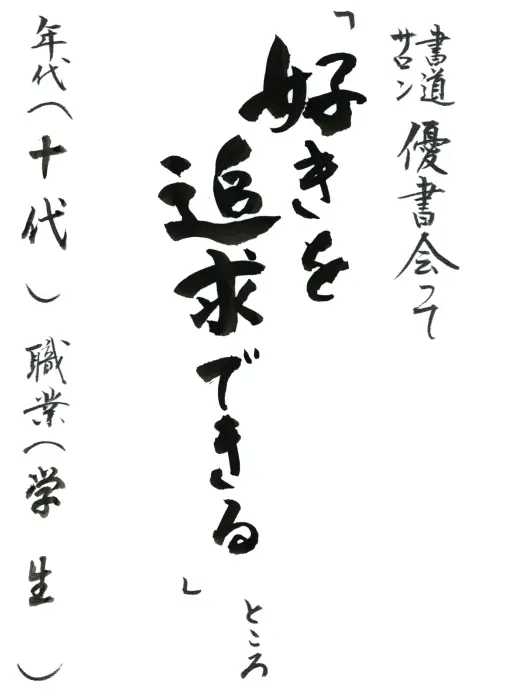 書道サロン 優書会って
「好きを
追求できる」
ところ
年代（十代）職業（学生）